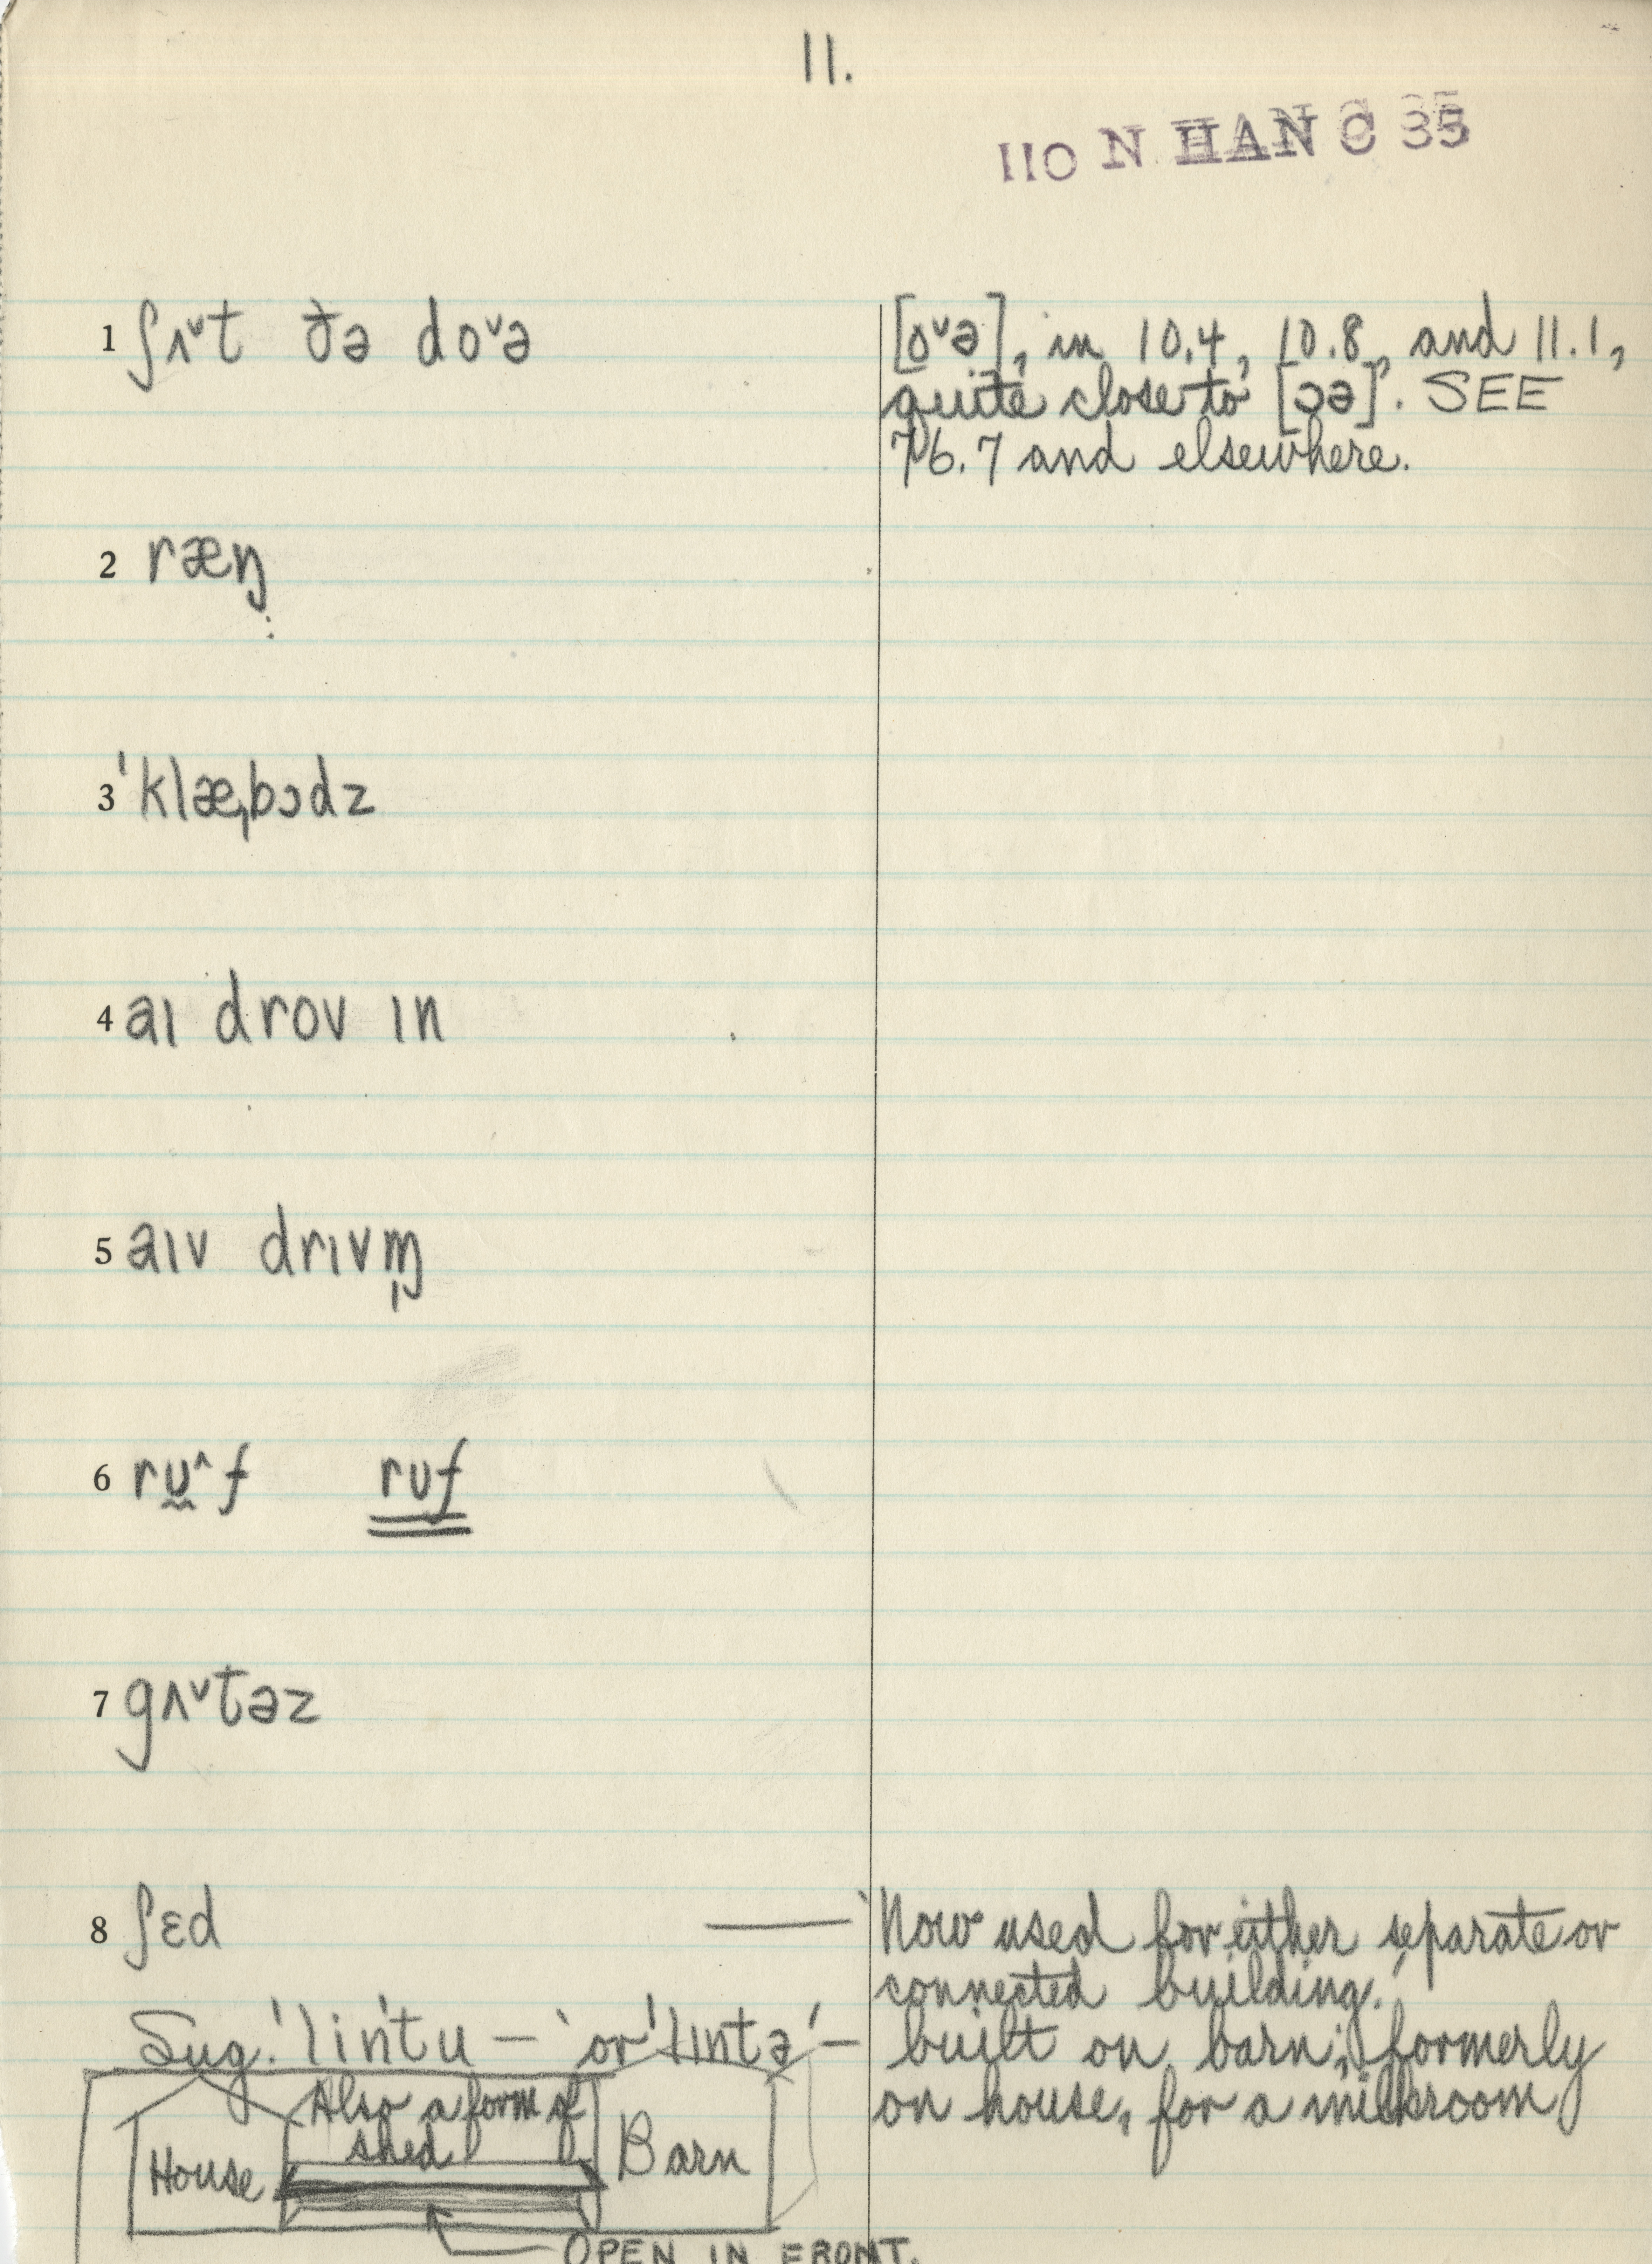 11.
110 N HAN C 35
1 ʃʌ˅t ðə do˅ə
[o˅ə], in 10.4, 10.8, and 11.1,
quite close to [ɔə]. SEE
76.7 and elsewhere.
2 ræŋ̤
3 ˈklæˌbɔdz
4 aɪ drov ɪn
5 aɪv drɪvɱ̩
6 rʊ˄f rʊf
7 gʌ˅təz
8 ʃɛd — Now used for either separate or
connected building.
Sug. ˈlinˈtu — or ˈlɪntə — built on barn; formerly
on house, for a milkroom
Also a form of
shed
House
Barn
OPEN IN FRONT.